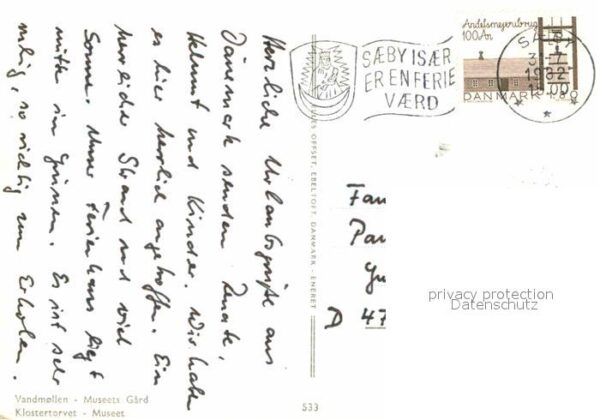 Herzliche Urlaubsgrüße aus
Dänemark senden Renate,
Helmut und Kinder. Wir haben
es hier herrlich angetroffen. Ein
herrlicher Strand und viel
Sonne. Unser Ferienhaus liegt
mitten im Grünen. Es ist sehr
ruhig, so richtig zum Erholen.
Vandmøllen - Museets Gård
Klostertorvet - Museet
533
OFFSET, EBELTOFT, DANMARK - ENERET
SÆBY ISÆR
ER EN FERIE
VÆRD
Andelsmejeribrug
100 År
DANMARK 1.80
1982
Fam
D 47
privacy protection
Datenschutz